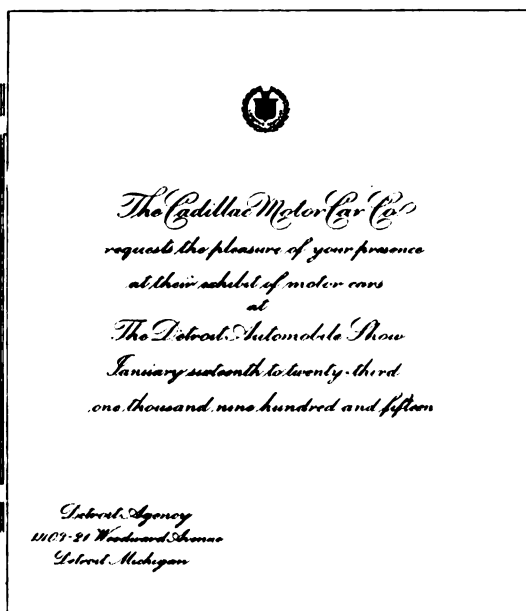 The Cadillac Motor Car Co
requests the pleasure of your presence
at their exhibit of motor cars
at
The Detroit Automobile Show
January sixteenth to twenty-third
one thousand nine hundred and fifteen
Detroit Agency
Woodward Avenue
Detroit Michigan